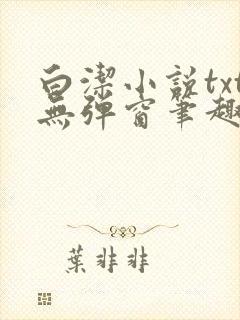 白潔小說txt
無彈窗筆趣
葉非非